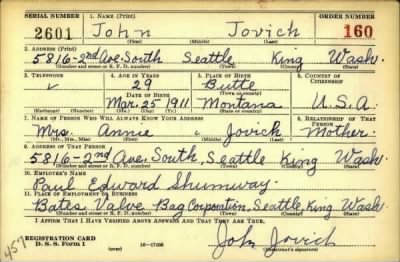 SERIAL NUMBER 1. NAME (Print) ORDER NUMBER
2601 John Jovich 160
(First) (Middle) (Last)
2. ADDRESS (Print)
5816-2nd Ave. South Seattle King Wash.
(Number and street or R. F. D. number) (Town) (County) (State)
3. TELEPHONE 4. AGE IN YEARS 5. PLACE OF BIRTH 6. COUNTRY OF CITIZENSHIP
29 Butte
DATE OF BIRTH (Town or county)
Mar. 25 1911 Montana U.S.A.
(Exchange) (Number) (Mo.) (Day) (Yr.) (State or country)
7. NAME OF PERSON WHO WILL ALWAYS KNOW YOUR ADDRESS 8. RELATIONSHIP OF THAT PERSON
Mrs. Annie Jovich Mother.
(Mr., Mrs., Miss) (First) (Middle) (Last)
9. ADDRESS OF THAT PERSON
5816-2nd Ave. South, Seattle King Wash
(Number and street or R. F. D. number) (Town) (County) (State)
10. EMPLOYER'S NAME
Paul Edward Shumway
11. PLACE OF EMPLOYMENT OR BUSINESS
Bates Valve Bag Corporation, Seattle, King Wash
(Number and street or R. F. D. number) (Town) (County) (State)
I AFFIRM THAT I HAVE VERIFIED ABOVE ANSWERS AND THAT THEY ARE TRUE.
REGISTRATION CARD
D. S. S. Form 1 (over) 16—17105 John Jovich
(Registrant's signature)
457